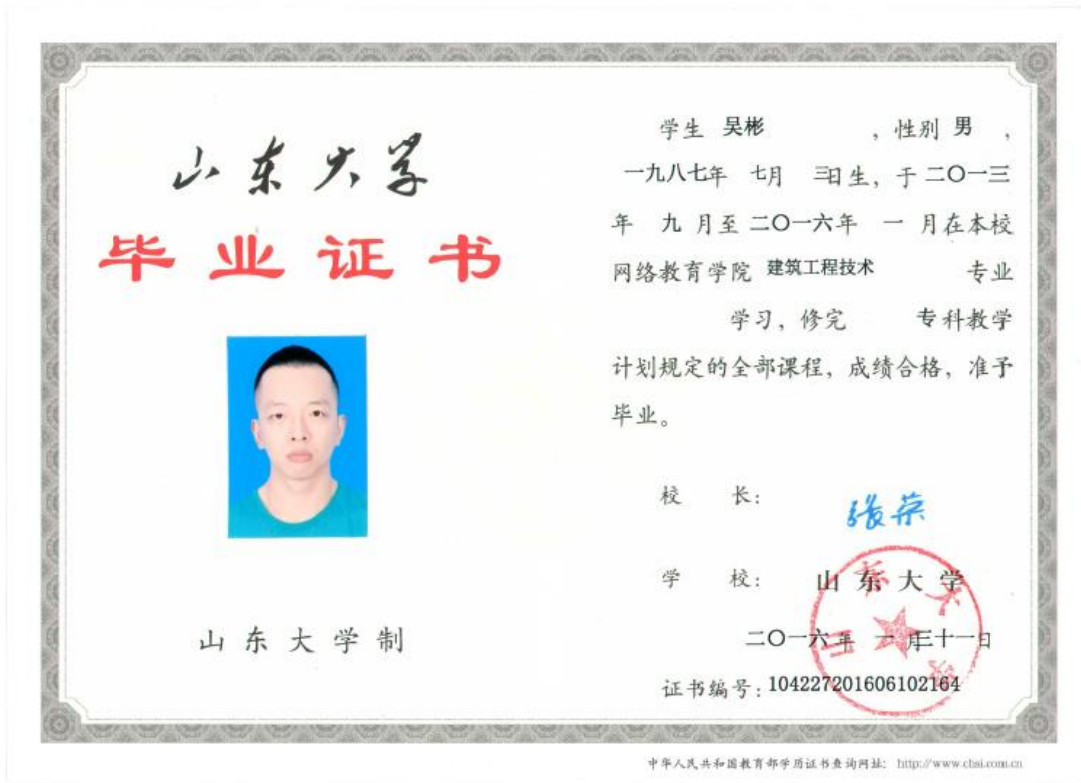 山东大学
毕业证书
山东大学制
学生 吴彬 ，性别 男 ，
一九八七年 七月 三日生，于 二〇一三
年 九 月至 二〇一六年 一 月在本校
网络教育学院 建筑工程技术 专业
学习，修完 专科教学
计划规定的全部课程，成绩合格，准予
毕业。
校 长：
张荣
学 校： 山东大学
二〇一六年 一月三十一日
证书编号：104227201606102164
山东大学
中华人民共和国教育部学历证书查询网址： http://www.chsi.com.cn